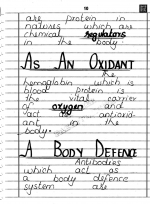 10
are protein in
natures which are
chemical regulators
in the body.
AS AN OXIDANT
the
hemoglobin which is
blood protein is
the vital carrier
of oxygen and
act as antioxid-
ant in the
body.
A BODY DEFENCE
Antibodies
which act as
a body defence
system are